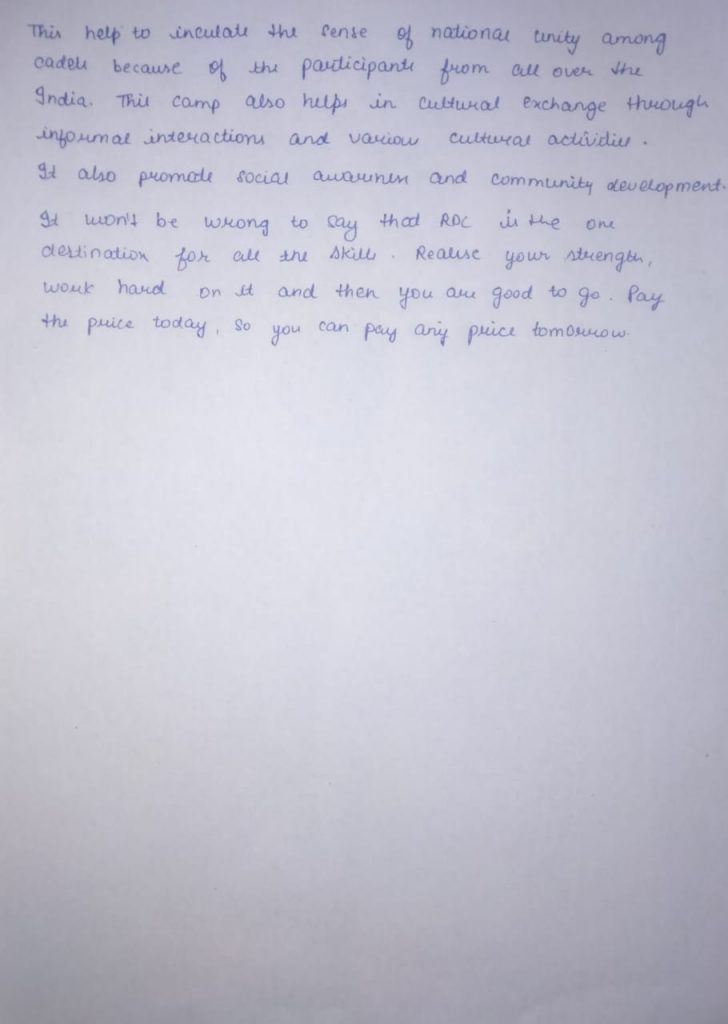 This help to inculate the sense of national unity among
cadets because of the participants from all over the
India. This camp also helps in cultural exchange through
informal interactions and various cultural activities.
It also promote social awareness and community development.
It won't be wrong to say that RDC is the one
destination for all the skills. Realise your strength,
work hard on it and then you are good to go. Pay
the price today, so you can pay any price tomorrow